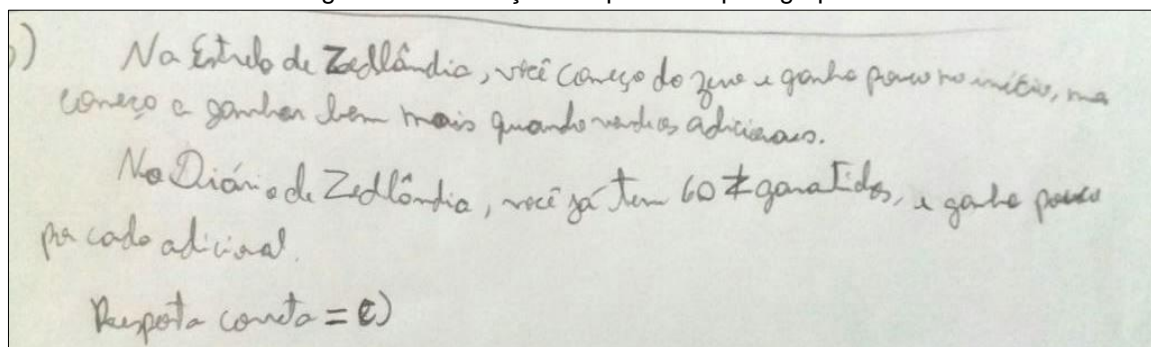 ) Na Estrela de Zedlândia, você começa do zero e ganha pouco no início, mas
começa a ganhar bem mais quando vende os adicionais.
No Diário de Zedlândia, você já tem 60 garantidos, e ganha pouco
por cada adicional.
Resposta correta = c)